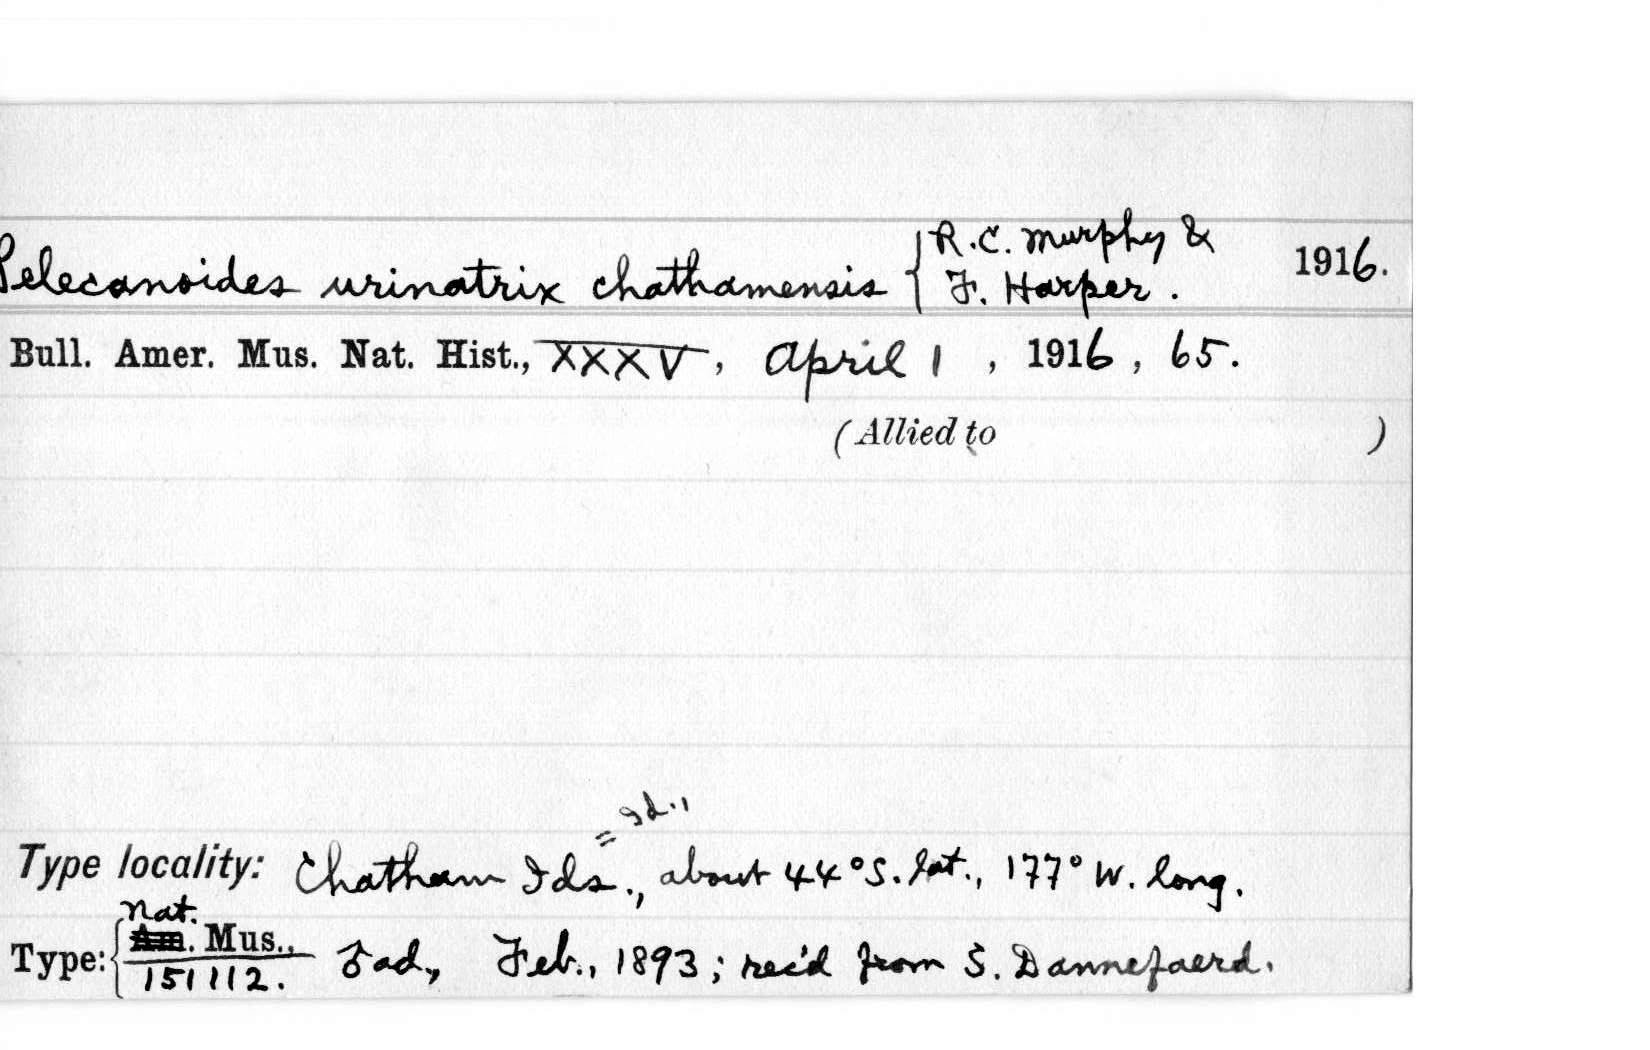 Pelecanoides urinatrix chathamensis { R.C. Murphy & F. Harper. 1916.
Bull. Amer. Mus. Nat. Hist., XXXV, April 1, 1916, 65.
(Allied to )
= Id.,
Type locality: Chatham Ids., about 44°S. lat., 177° W. long.
Nat.
Type: { Am. Mus., 151112. ad., Feb., 1893; rec'd from S. Dannefaerd.